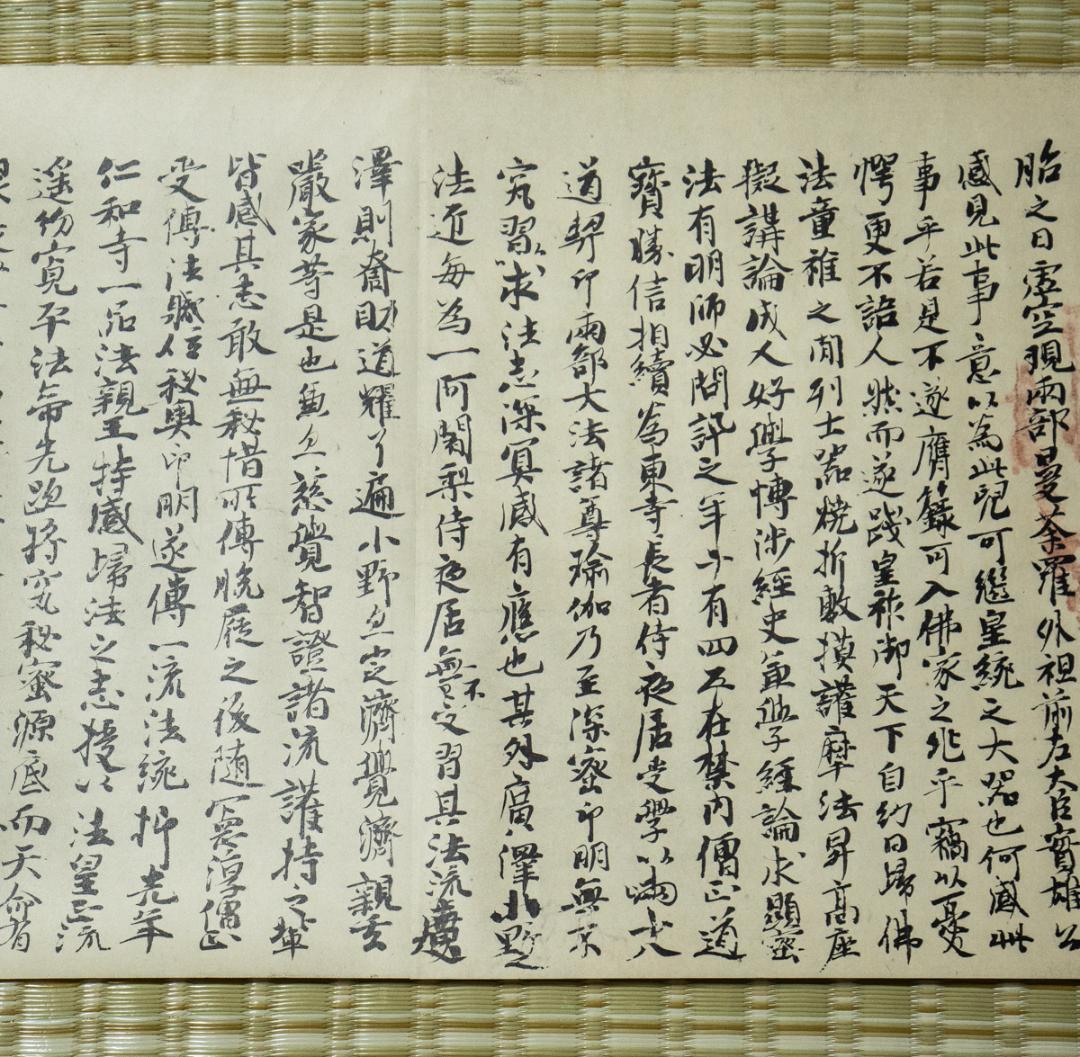 胎之日虚空現兩部曼荼羅外祖前左大臣實雄公
感見此事意以為此児可繼皇統之大器也何感此
事乎若是不遂膺籙可入佛家之兆乎竊以憂
愕更不語人然而遂践皇祚御天下自約日歸佛
法童稚之間列士器焼折敷摸護摩法昇高座
擬講論成人好學博涉經史兼學經論求顯密
法有明師必問訊之年廿有四不在禁内僧正道
寶勝信相續為東寺長者侍夜居受學以
道契印兩部大法諸尊瑜伽乃至深密印明無不
究習求法志深冥感有應也其外廣澤小野之
法匠每為一阿闍梨侍夜居無不受習其法流廣
澤則奝助道耀了遍小野且定濟覺濟親玄
嚴家等是也兼又慈覺智證諸流護持之輩
皆感其志敢無秘惜所傳脱屣之後随
受傳法職位秘奥印明遂傳一流法統抑先年
仁和寺一品法親王持感歸法之志授以法皇正流
遥仰寛平法帝先跡将究秘蜜源底而天命有